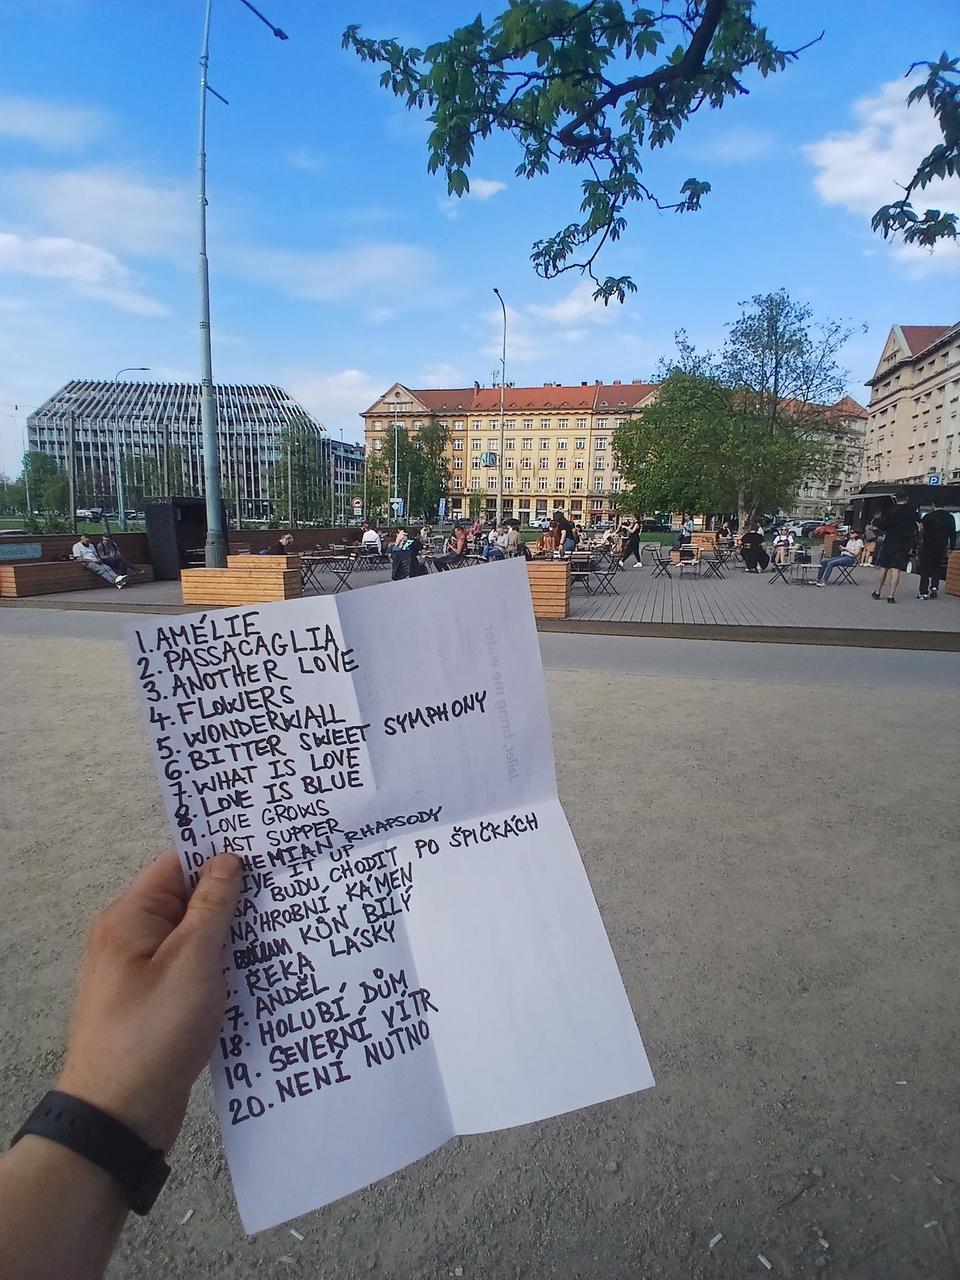 1. AMÉLIE
2. PASSACAGLIA
3. ANOTHER LOVE
4. FLOWERS
5. WONDERWALL
6. BITTER SWEET SYMPHONY
7. WHAT IS LOVE
8. LOVE IS BLUE
9. LOVE GROWS
10. LAST SUPPER
HEMIAN RHAPSODY
IVE IT UP
SA BUDU CHODIT PO ŠPIČKÁCH
NÁHROBNÍ KÁMEN
KŮŇ BÍLÝ
ŘEKA LÁSKY
7. ANDĚL
18. HOLUBÍ DŮM
19. SEVERNÍ VÍTR
20. NENÍ NUTNO
bring me water
P